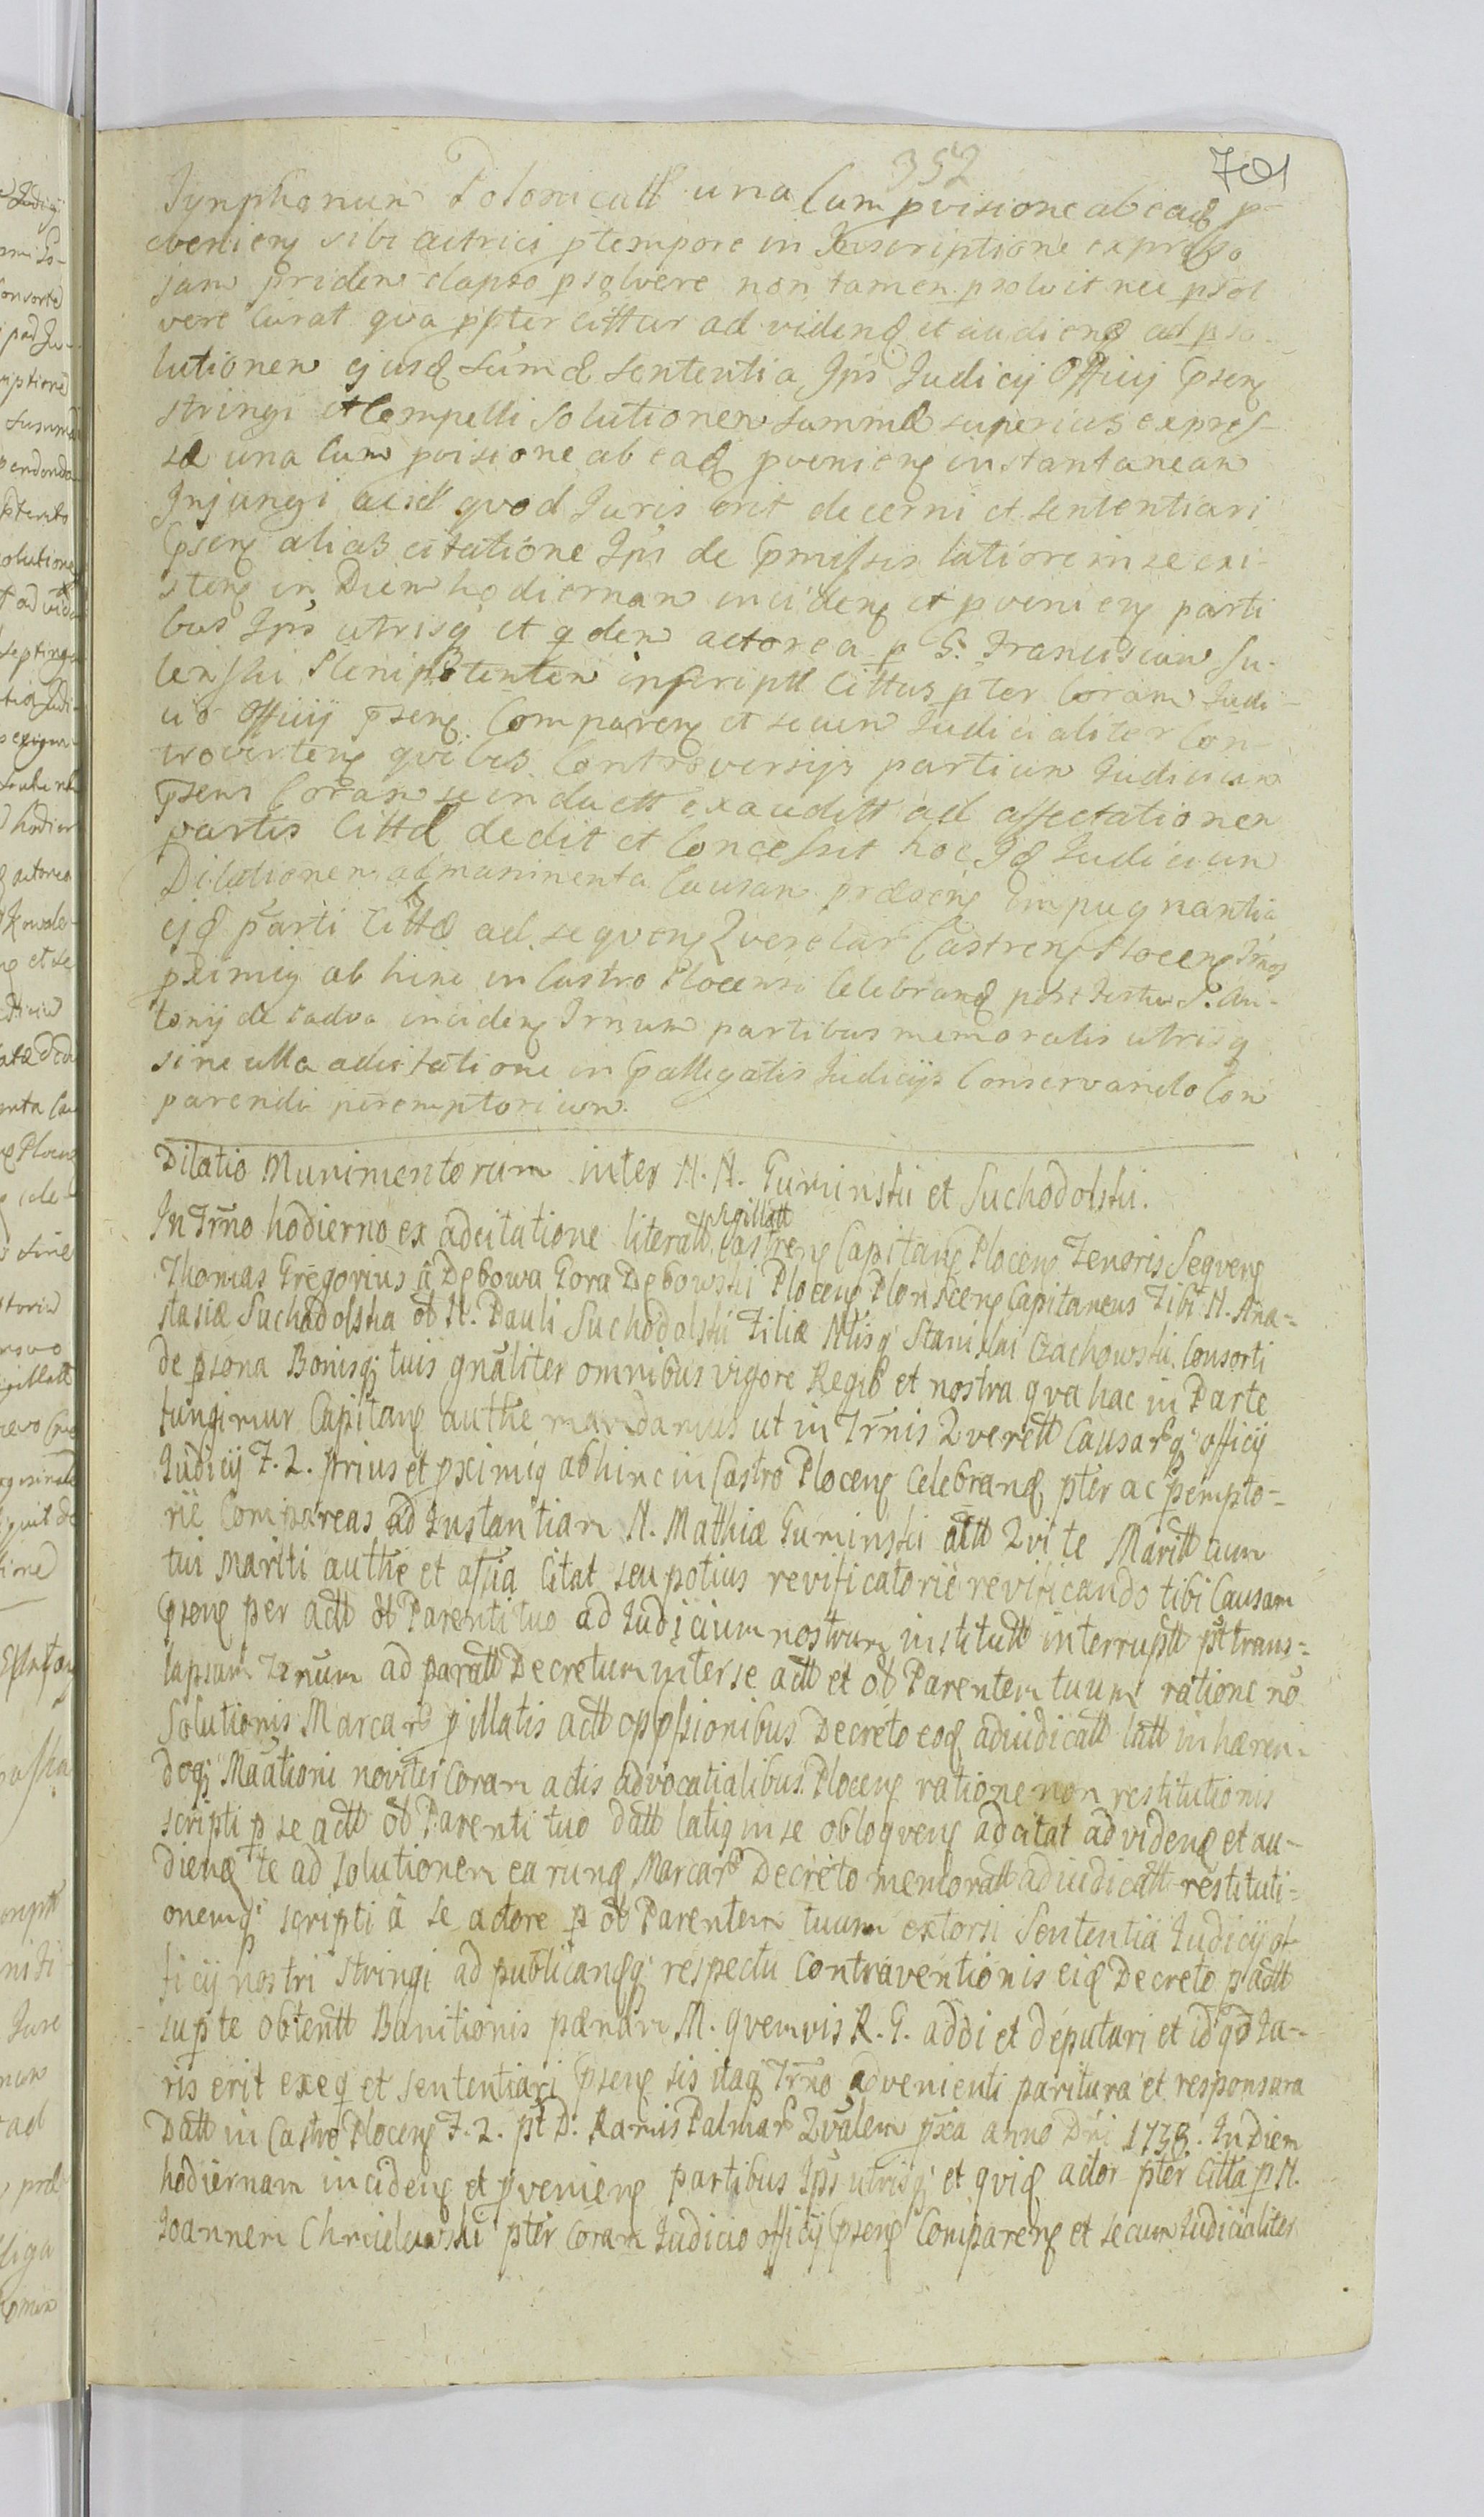 352
701
Tynphonum Polonicall una Cum pvisione ab eadꝫ p-
cvenienꝫ sibi actrici ptempore in Xscriptione expresso
jam pridem elapso psolvere non tamen psolvit nec psol
vere Curat qva ppter Cittur ad videndꝫ et audiendꝫ ad pso-
lutionem ejusdꝫ sumæ sententia Ipś Judicij Officij Gpsenꝫ
stringi et Compelli Solutionem summæ superius expres-
sæ una Cum pvisione ab eadꝫ pvenienꝫ instantaneam
Injungi ac id quod Juris erit decerni et sententiari
Gpsenꝫ alias citatione Ipś de Gpmissis latiorem in se exi-
stenꝫ in Diem hodiernam incidenꝫ et pvenienꝫ parti
bus Ipś utrisqꝫ et qdem actorea p G. Franciscum Su-
lenski Plenipotentem inscriptt Cittus pter Coram Judi-
cio Officij Gpsenꝫ Comparenꝫ et secum Judicialiter Con-
trovertenꝫ qvibus Controversijs partium Judicium
Gpsens Coram se inductt exauditt ad affectationem
partis Cittæ dedit et Concessit hoc Idꝫ Judicium
Dilationem ad munimenta Causam præsenꝫ impugnantia
ejdꝫ parti Cittæ ad seqvenꝫ Qverelar Castrenꝫ Plocenꝫ Trnos
pximiꝫ ab hinc in Castro Plocensi Celebrandꝫ post Festum S. An-
tonij de Padva incidenꝫ Trnum partibus memoratis utrisqꝫ
sine ulla adcitatione in Gpallegatis Judicijs Conservando Com
parendi peremptorium.
Dilatio Munimentorum inter N. N. Guminskii et Suchodolski.
In Trno hodierno ex adcitatione literall sigillatt Castrenꝫ Capitanꝫ Plocenꝫ Tenoris Seqvenꝫ
Thomas Gregorius â Dębowa Gora Dębowski Plocenꝫ Plonscenꝫ Capitaneus Tibi N. Ana-
stasiæ Suchodolska ol N. Pauli Suchodolski Filiæ Nlisqꝫ Stanislai Czachowski Consorti
de psona Bonisqꝫ tuis gnāliter omnibus vigore Regio et nostra qva hac in Parte
fungimur Capitanꝫ authe mandamus ut in Trnis Qverell Causarqꝫ officij
Judicij F. 2. prius et pximiꝫ abhinc in Castro Plocenꝫ Celebrandꝫ pter ac pempto-
rie Compareas ad Instantiam N. Matthiæ Guminski actt Qvi te Maritt cum
tui mariti authe et assia Citat seu potius revificatorie revificando tibi Causam
Gpsenꝫ per actt ol Parenti tuo ad Judicium nostrum institutt interruptt pt trans-
lapsum Trnum ad paratt Decretum inter se actt et ol Parentem tuum ratione no
Solutionis Marcar p illatis actt oppssionibus Decreto eodꝫ adiudicatt latt in hæren-
doqꝫ Māationi noviter Coram actis advocatialibus Plocenꝫ ratione non restitutionis
scripti p se actt ol Parenti tuo datt latiꝫ in se obloqvenꝫ adcitat ad videndꝫ et au-
diendꝫ te ad Solutionem earundꝫ Marcar Decreto memoratt adiudicatt restituti-
onemqꝫ scripti â se actore p ol Parentem tuum extorsi Sententia Judicij of-
ficij nostri stringi ad publicandqꝫ respectu Contraventionis eidꝫ Decreto p actt
sup te obtentt Banitionis pænam M. qvemvis R. G. addi et deputari et id qd Ju-
ris erit exeqꝫ et sententiari Gpsenꝫ sis itaqꝫ Trno advenienti paritura et responsura
Datt in Castro Plocenꝫ F. 2. pt D. Ramis Palmar Qvālem pxia anno Dni 1738. In Diem
hodiernam incidenꝫ et pvenienꝫ partibus Ipś utrisqꝫ et qvidꝫ actor pter Citta p N.
Joannem Chrcielewski pter Coram Judicio officij Gpsenꝫ Comparenꝫ et secum Judicialiter